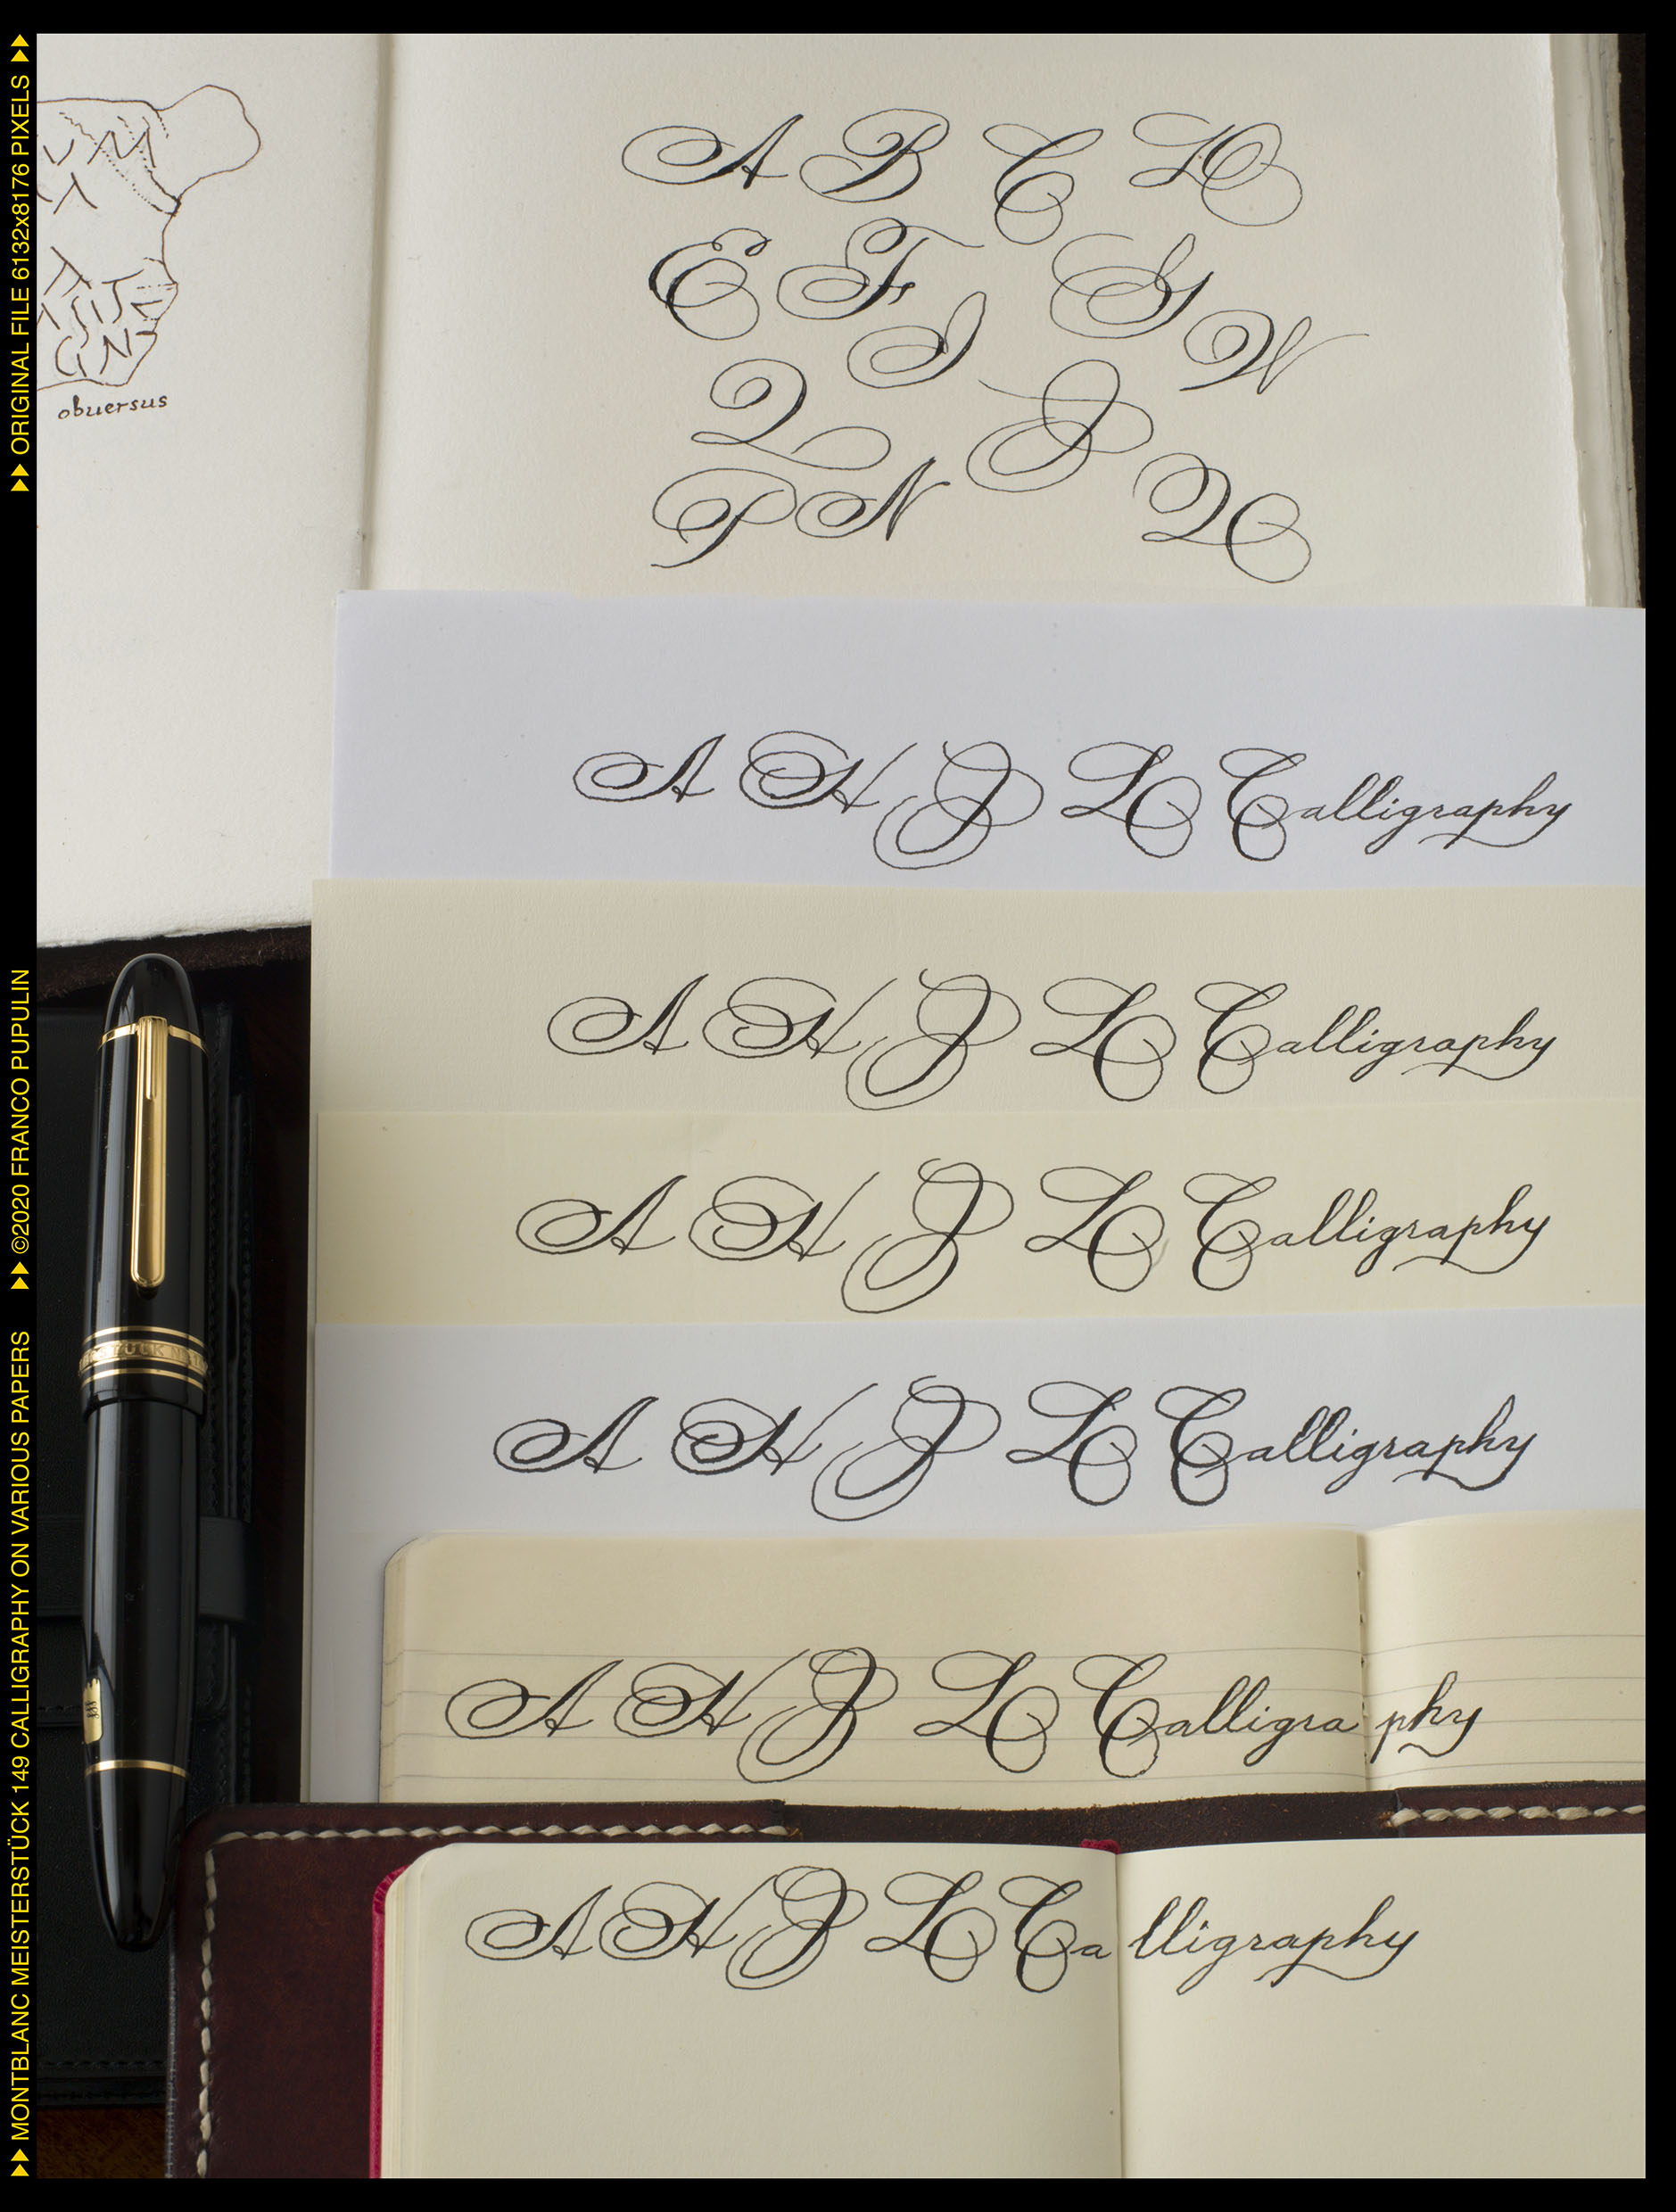 obuersus
A B C D
E F G
I W
Q J
P N
A H J L Calligraphy
A H J L Calligraphy
A H J L Calligraphy
A H J L Calligraphy
A H J L Calligra phy
A H J L Ca lligraphy
MONTBLANC MEISTERSTÜCK 149 CALLIGRAPHY ON VARIOUS PAPERS ©2020 FRANCO PUPULIN ORIGINAL FILE 6132x8176 PIXELS